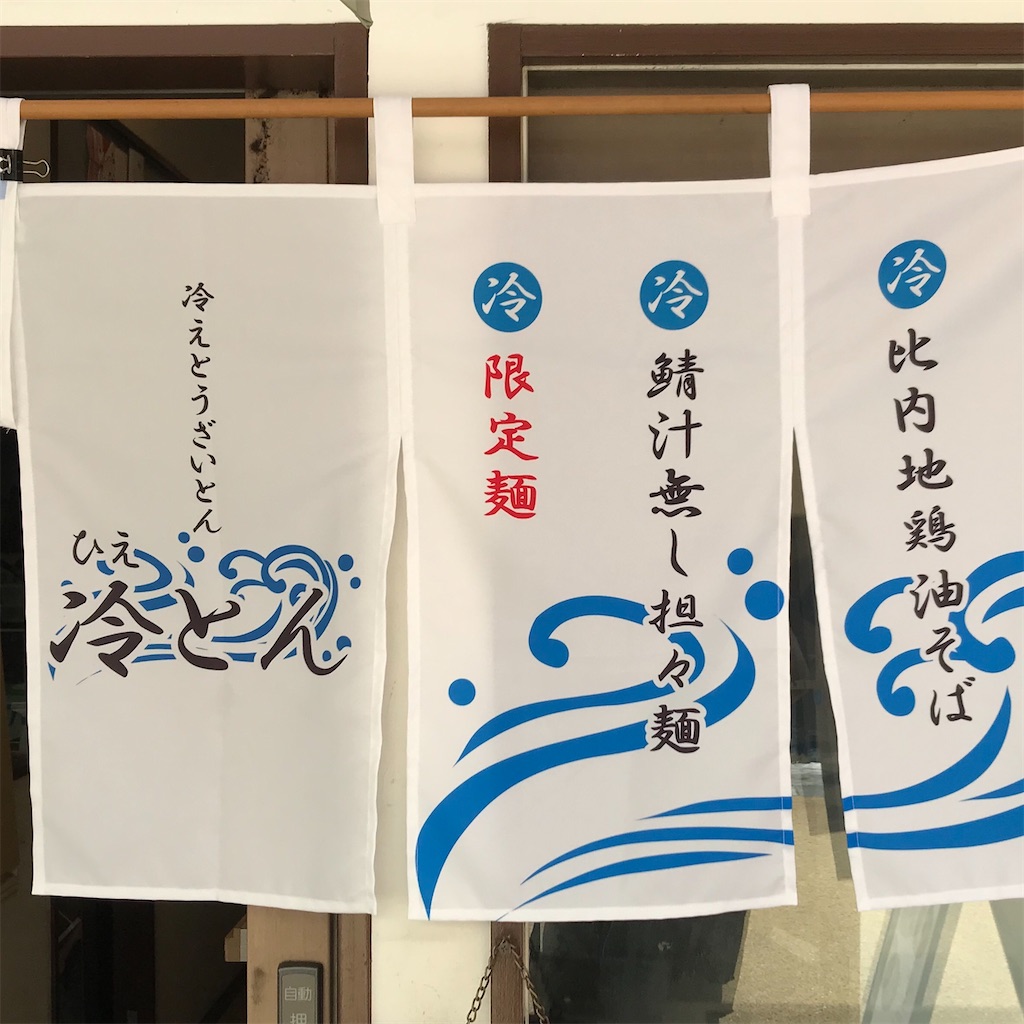 冷
比内地鶏 油そば
冷
鯖汁無し担々麺
冷
限定麺
冷えとうざいとん
ひえ
冷とん
自動
押